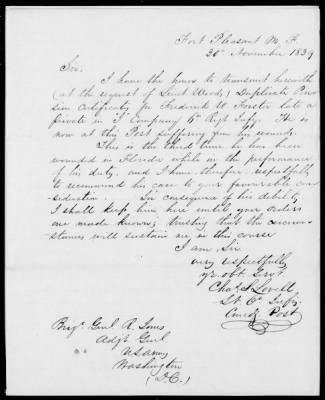 Fort Pleasant M. F.
30th November 1839
Sir.
I have the honor to transmit herewith
(at the request of Lieut Woods) Duplicate Pen-
sion Certificates for Frederick W. Forster late a
private in "I" Company 6th Regt Infy. He is
now at this Post suffering from his wounds.
This is the third time he has been
wounded in Florida while in the performance
of his duty, and I have therefore respectfully
to recommend his case to your favorable con-
sideration. In consequence of his debility
I shall keep him here until your orders
are made known; trusting that the circum-
stances will sustain me in this course
I am Sir
very respectfully
yr. obt. Servt.
Chas. S. Lovell
Lt. 6th Infy.
Comdg Post
Brigr Genl R. Jones
Adjt Genl
US Army
Washington
(D.C.)